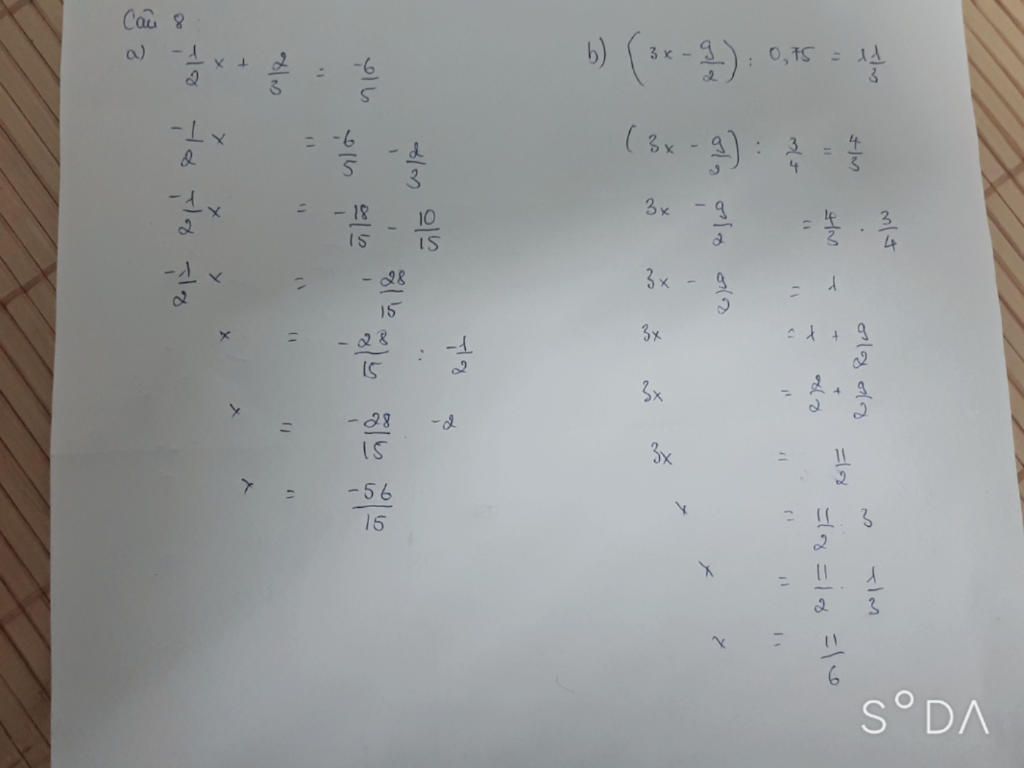 Câu 8
a) -1/2 x + 2/3 = -6/5
-1/2 x = -6/5 - 2/3
-1/2 x = -18/15 - 10/15
-1/2 x = -28/15
x = -28/15 : -1/2
x = -28/15 . -2
x = -56/15
b) (3x - 9/2) : 0,75 = 1 1/3
(3x - 9/2) : 3/4 = 4/3
3x - 9/2 = 4/3 . 3/4
3x - 9/2 = 1
3x = 1 + 9/2
3x = 2/2 + 9/2
3x = 11/2
x = 11/2 : 3
x = 11/2 . 1/3
x = 11/6
S°DA